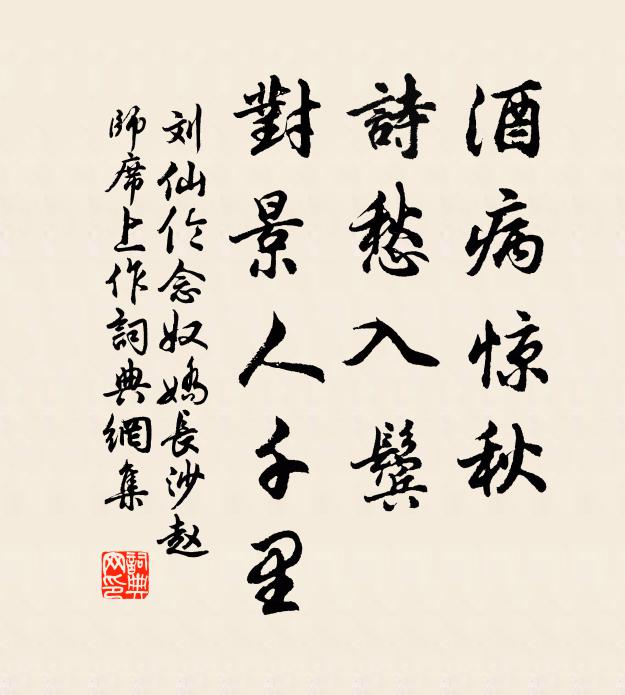 酒病惊秋
詩愁入鬢
對景人千里
刘仙伦念奴嬌長沙赵
師席上作詞典網集
詞典网印